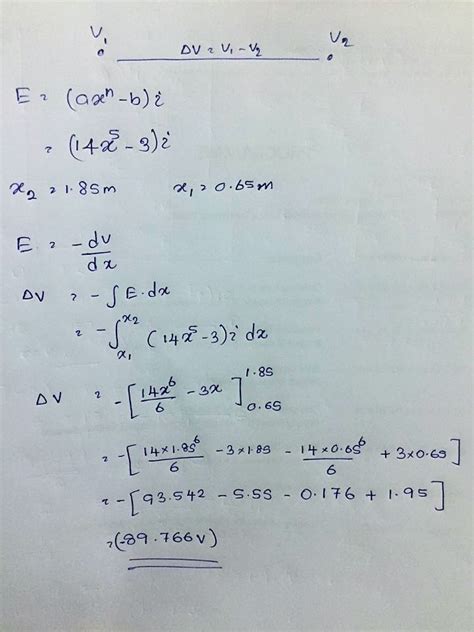 V₁ V₂
ΔV = V₁ - V₂
E = (axⁿ - b) i
= (14x⁵ - 3) i
x₂ = 1.85m x₁ = 0.65m
E = -dv/dx
ΔV = -∫ E·dx
= -∫_{x₁}^{x₂} (14x⁵ - 3) i dx
ΔV = -[14x⁶/6 - 3x]_{0.65}^{1.85}
= -[14×1.85⁶/6 - 3×1.85 - 14×0.65⁶/6 + 3×0.65]
= -[93.542 - 5.55 - 0.176 + 1.95]
= (-89.766V)